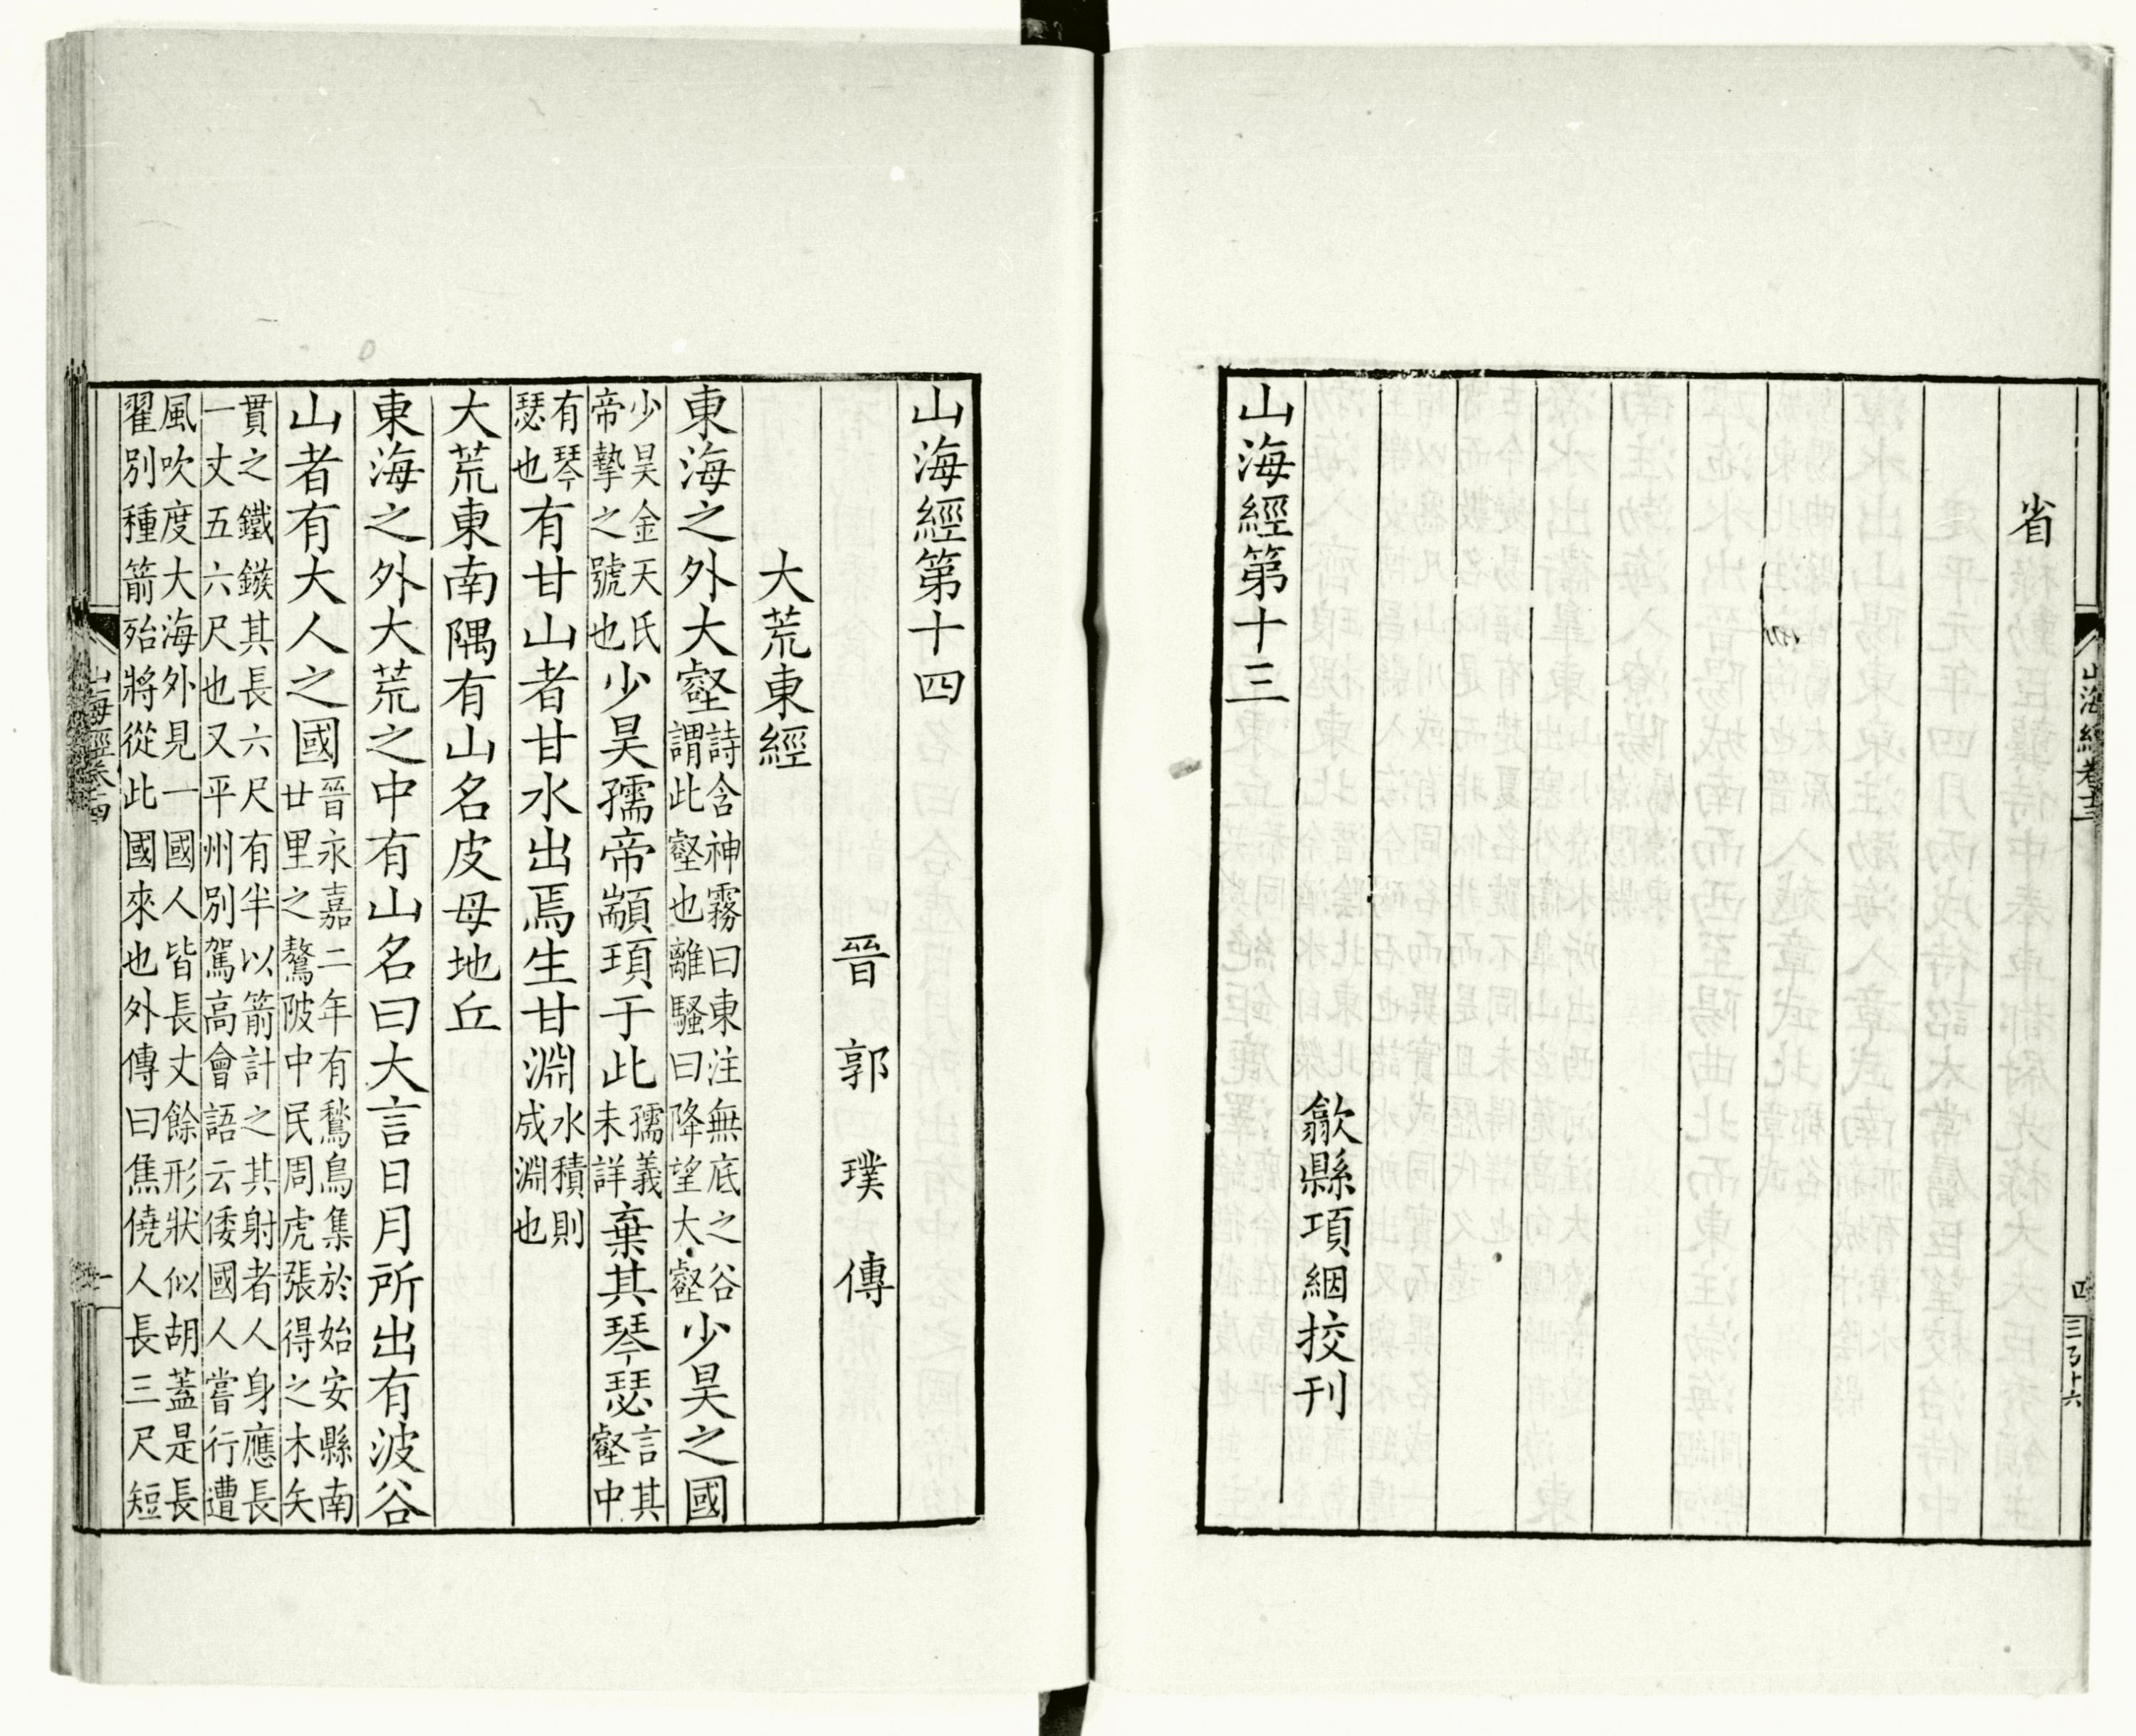 省
歙縣項絪挍刊
山海經第十三
山海經第十四
晉郭璞傳
大荒東經
東海之外大壑詩含神霧曰東注無底之谷謂此壑也離騷曰降望大壑少昊之國
少昊金天氏帝摯之號也少昊孺帝顓頊于此孺義未詳棄其琴瑟言其壑中
有琴瑟也有甘山者甘水出焉生甘淵水積則成淵也
大荒東南隅有山名皮母地丘
東海之外大荒之中有山名曰大言日月所出有波谷
山者有大人之國晉永嘉二年有鶖鳥集於始安縣南廿里之鶖陂中民周虎張得之木矢
貫之鐵鏃其長六尺有半以箭計之其射者人身應長一丈五六尺也又平州別駕高會語云倭國人嘗行遭
風吹度大海外見一國人皆長丈餘形狀似胡蓋是長翟別種箭殆將從此國來也外傳曰焦僥人長三尺短
山海經卷十三
山海經卷十四